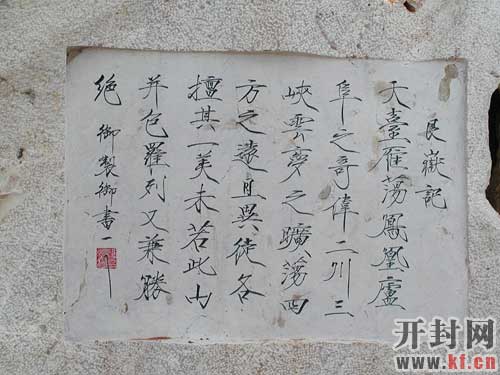 艮嶽記
天臺雁蕩鳳凰廬
阜之奇偉二川三
峽雲夢之曠蕩四
方之遠且異徒各
擅其一美未若此山
并包羅列又兼勝
絶 御製御書
开封网
www.kf.cn